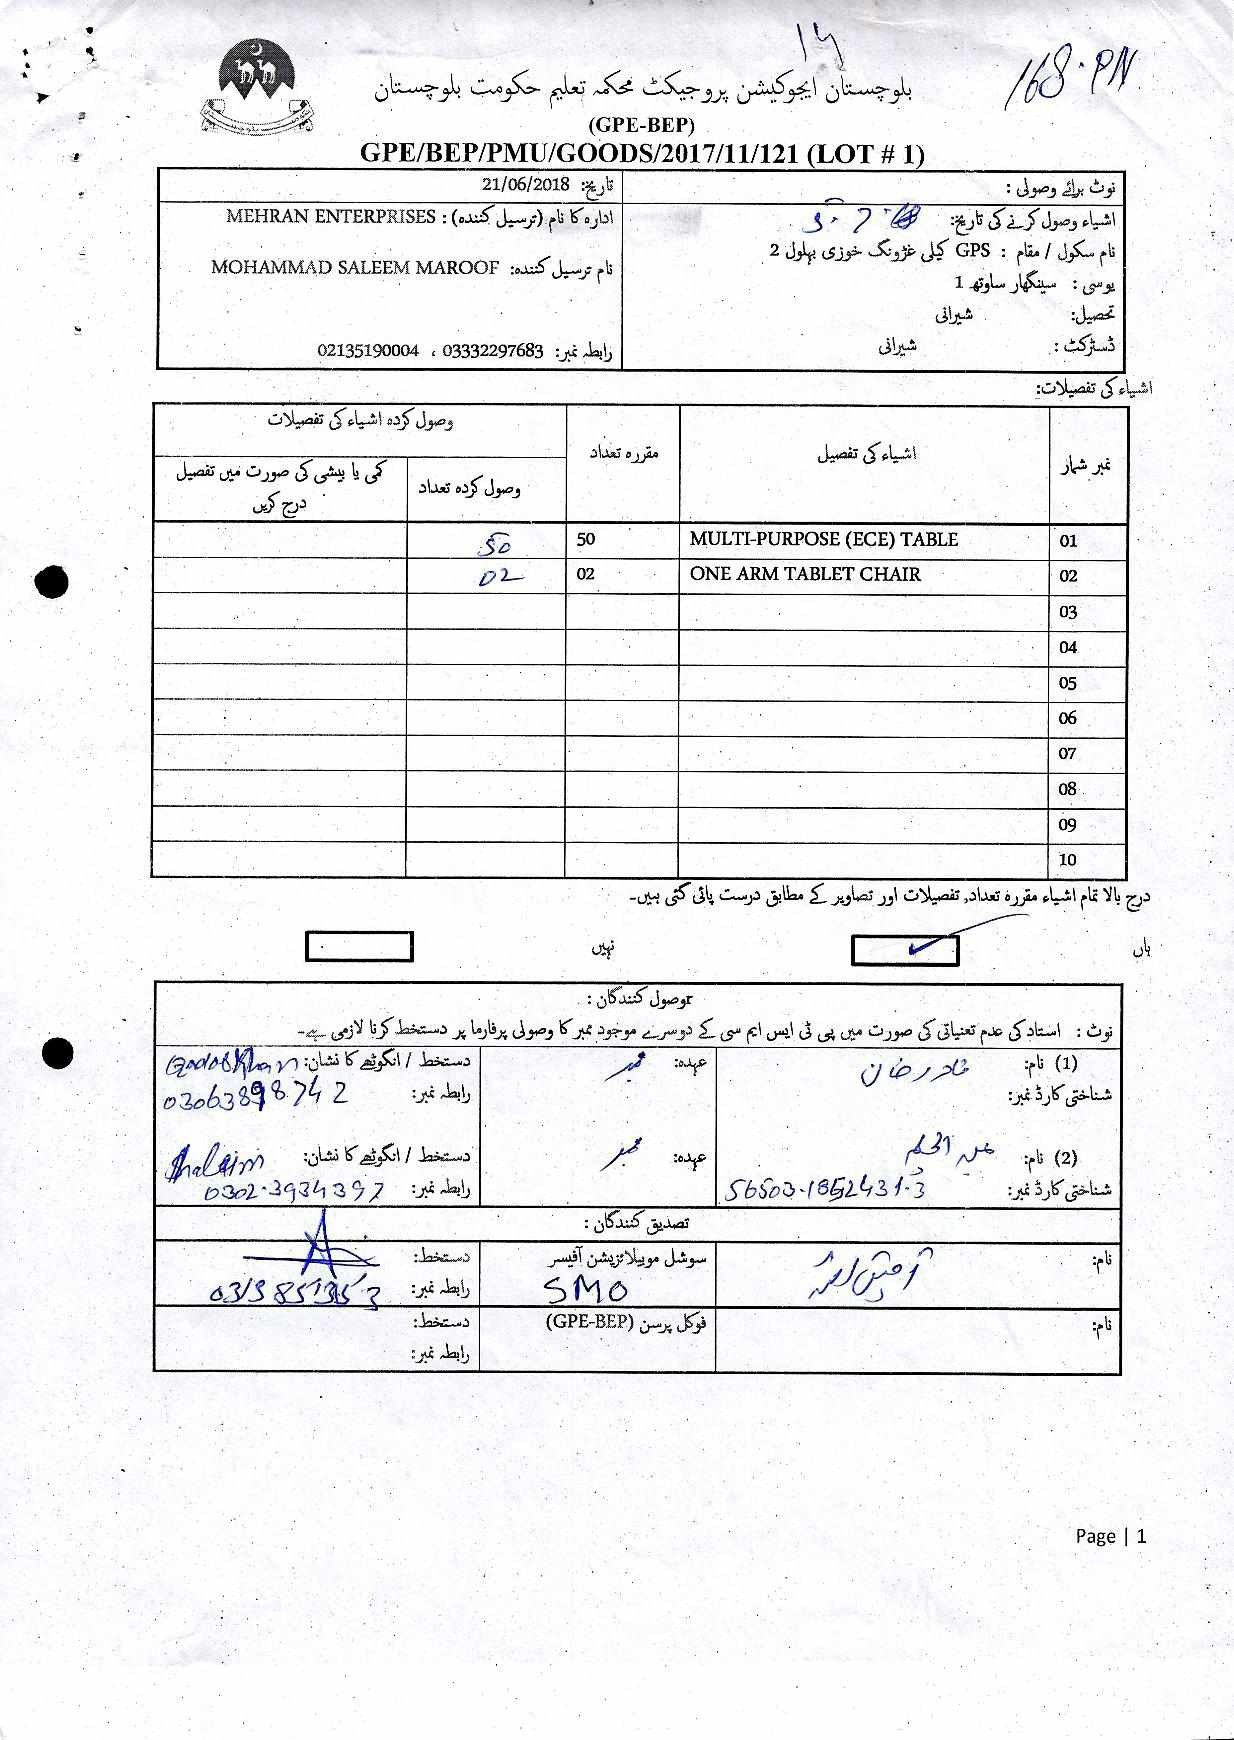 168-PN
بلوچستان ایجوکیشن پروجیکٹ محکمہ تعلیم حکومت بلوچستان
(GPE-BEP)
GPE/BEP/PMU/GOODS/2017/11/121 (LOT # 1)
نوٹ برائے وصولی :
تاریخ: 21/06/2018
اشیاء وصول کرنے کی تاریخ:
ادارہ کا نام (ترسیل کنندہ) : MEHRAN ENTERPRISES
نام سکول / مقام : GPS کیلی غژونگ خوزی بہلول 2
نام ترسیل کنندہ: MOHAMMAD SALEEM MAROOF
یوسی : سینگھار ساوتھ 1
تحصیل: شیرانی
ڈسٹرکٹ : شیرانی
رابطہ نمبر: 03332297683 ، 02135190004
اشیاء کی تفصیلات:
نمبر شمار اشیاء کی تفصیل مقررہ تعداد وصول کردہ اشیاء کی تفصیلات
وصول کردہ تعداد کمی یا بیشی کی صورت میں تفصیل درج کریں
01 MULTI-PURPOSE (ECE) TABLE 50 50
02 ONE ARM TABLET CHAIR 02 02
03
04
05
06
07
08
09
10
درج بالا تمام اشیاء مقررہ تعداد, تفصیلات اور تصاویر کے مطابق درست پائی گئی ہیں۔
ہاں نہیں
وصول کنندگان :
نوٹ : استاد کی عدم تعنیاتی کی صورت میں پی ٹی ایس ایم سی کے دوسرے موجود ممبر کا وصولی پرفارما پر دستخط کرنا لازمی ہے۔
(1) نام: قادر خان عہدہ: ممبر دستخط / انگوٹھے کا نشان:
شناختی کارڈ نمبر: رابطہ نمبر: 03063898742
(2) نام: عہدہ: ممبر دستخط / انگوٹھے کا نشان:
شناختی کارڈ نمبر: 56503-1852431-3 رابطہ نمبر: 0302-3934397
تصدیق کنندگان :
نام: سوشل موبیلائزیشن آفیسر دستخط:
SMO رابطہ نمبر:
نام: فوکل پرسن (GPE-BEP) دستخط:
رابطہ نمبر:
Page | 1